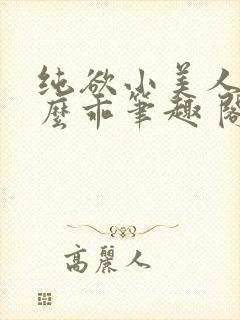 纯欲小美人
么乖笔趣阁
高丽人